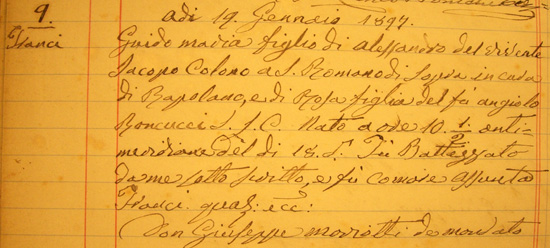 9.
Franci
adì 19. Gennaio 1897.
Guido maria figlio di Alessandro del vivente
Jacopo Colono a S. Romano di Sopra in cura
di Rapolano, e di Rosa figlia del fù angiolo
Roncucci S. I. C. Nato a ore 10. 1/2 anti-
meridiane del dì 18. Fù Battezzato
da me sotto scritto, e fù comare assunta
Franci qual: ecc:
Don Giuseppe mariotti